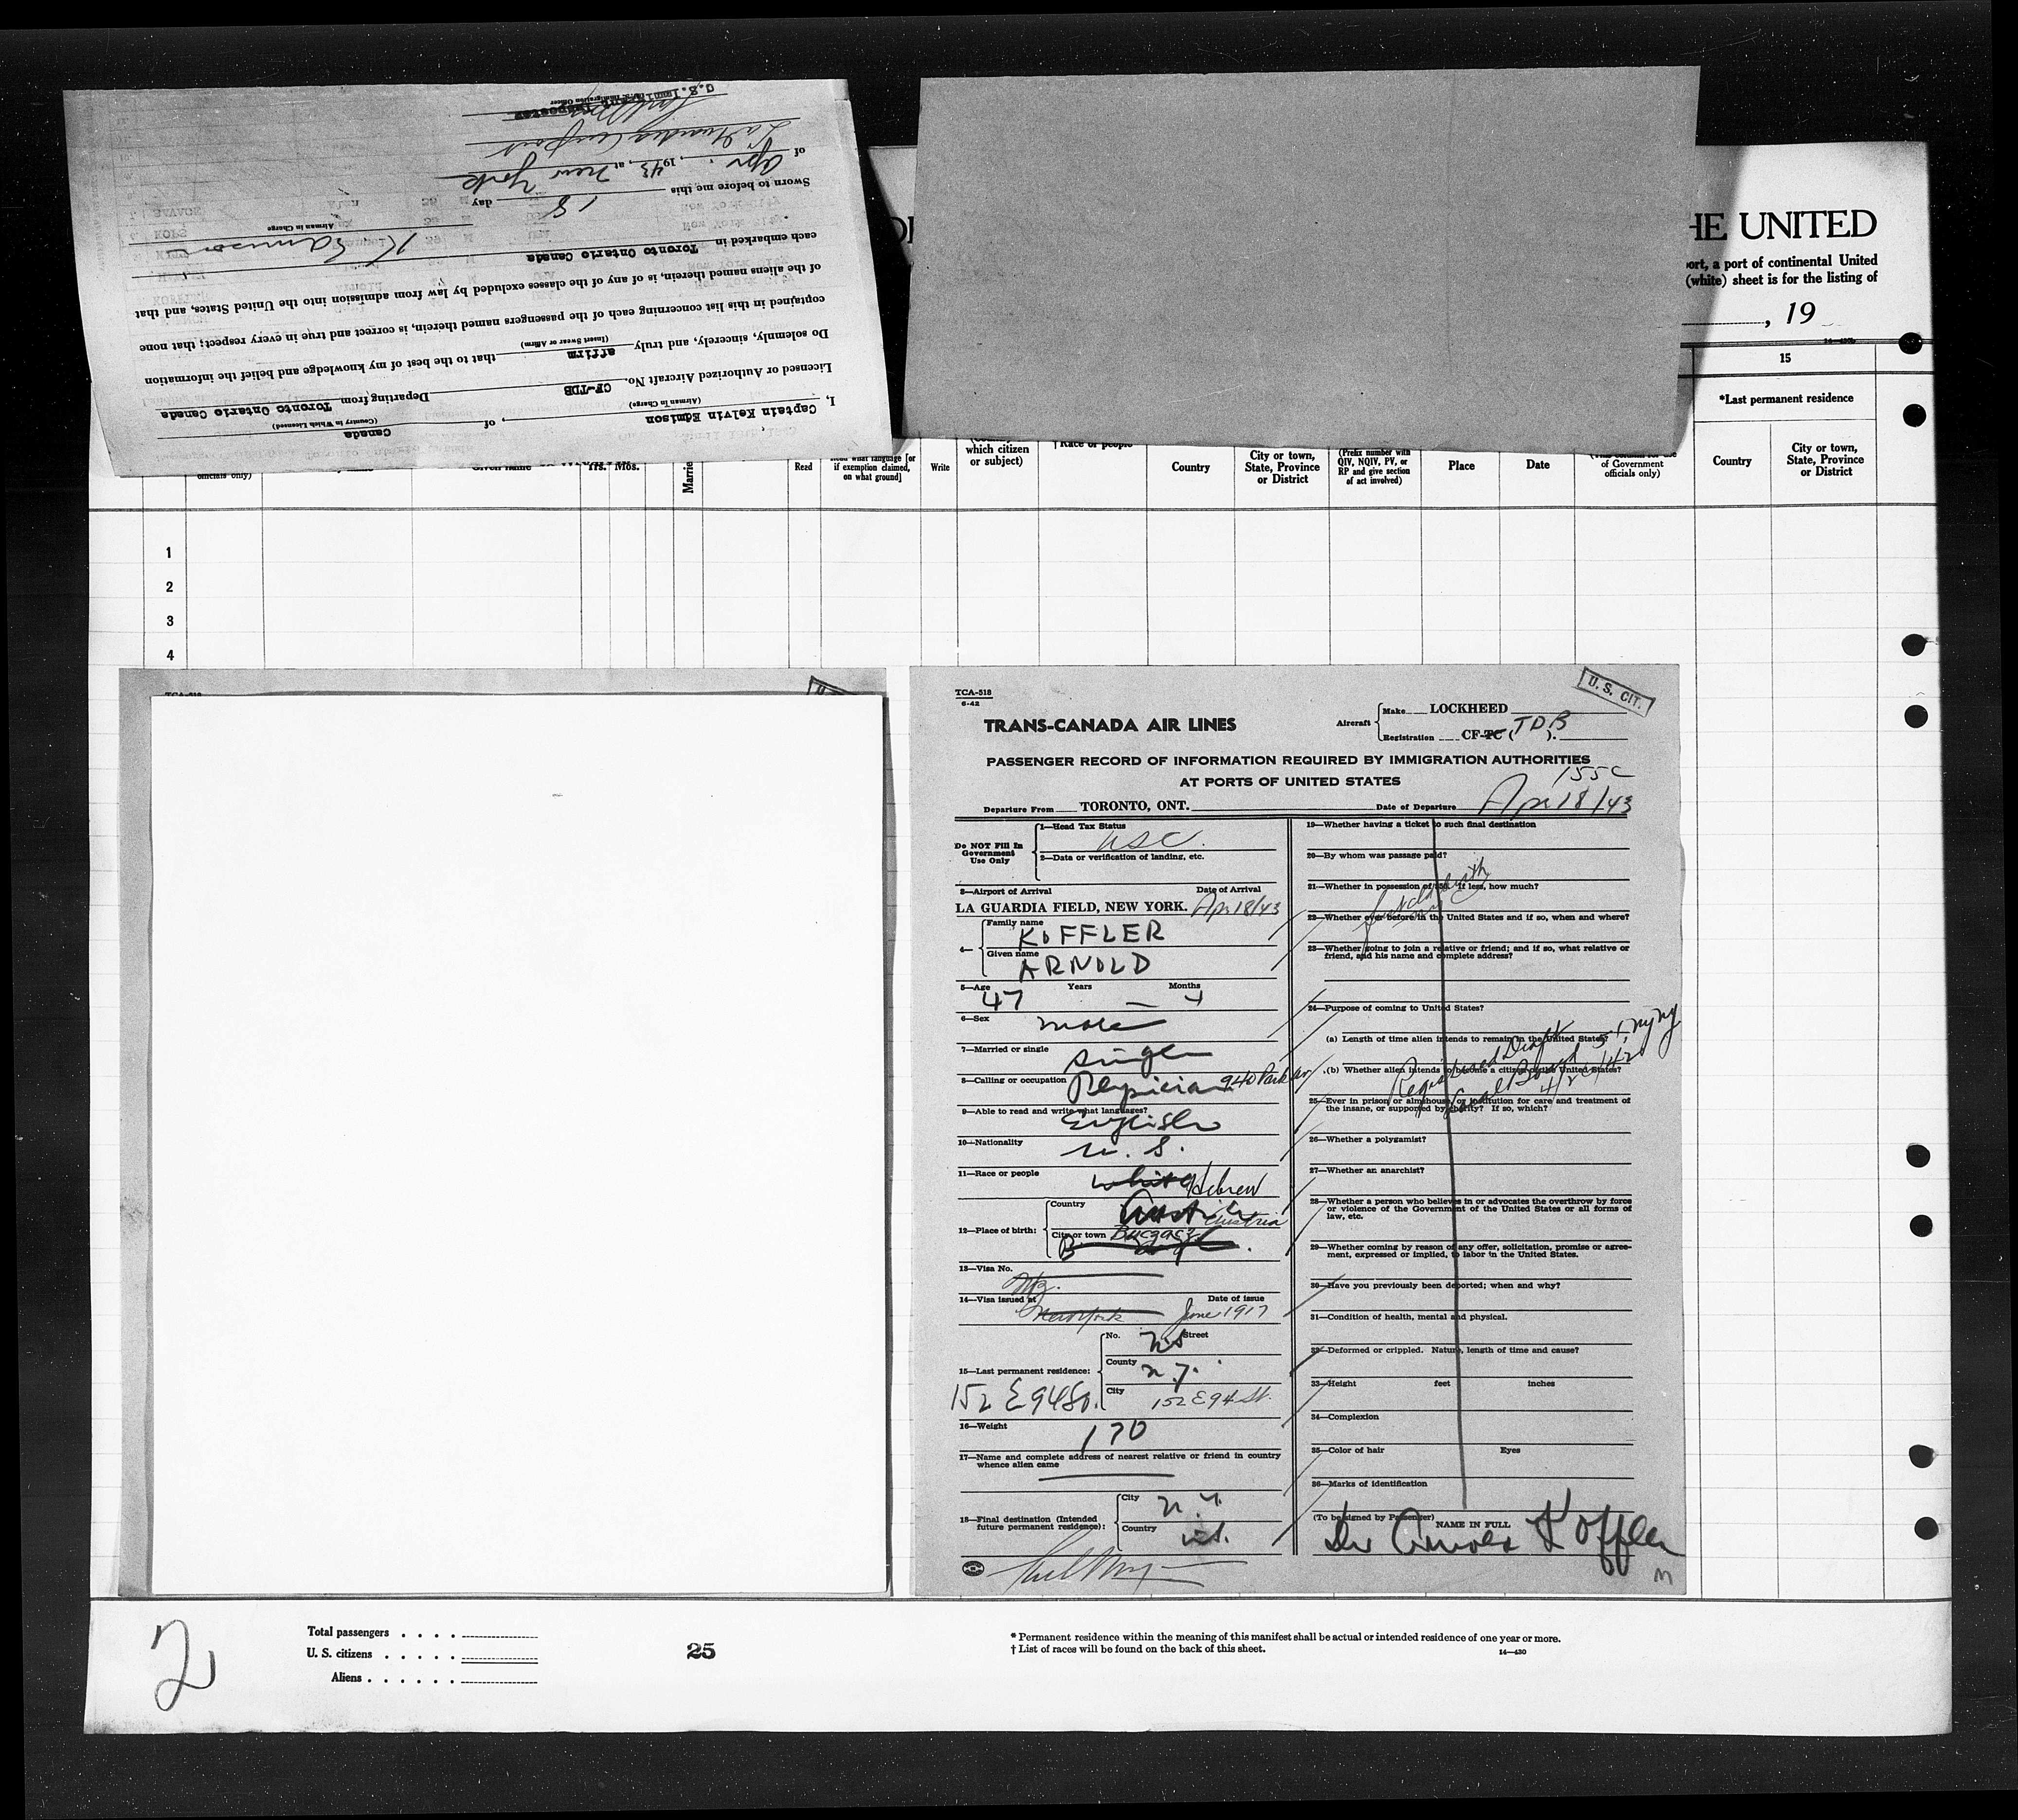 I, Captain Kelvin Edmison, of Canada
(Airman in Charge) (Country in Which Licensed)
Licensed or Authorized Aircraft No. CF-TDB Departing from Toronto Ontario Canada
Do solemnly, sincerely, and truly affirm that to the best of my knowledge and belief the information
(Insert Swear or Affirm)
contained in this list concerning each of the passengers named therein, is correct and true in every respect; that none
of the aliens named therein, is of any of the classes excluded by law from admission into the United States, and that
each embarked in Toronto Ontario Canada
Airman in Charge
Sworn to before me this 18 day
of Apr., 1943, at New York
La Guardia Airport
U.S. Immigrant Inspector
Immigration Officer
HE UNITED
ort, a port of continental United
(white) sheet is for the listing of
, 19
15
*Last permanent residence
officials only)
Given name
Yrs. Mos.
Read
Read what language [or
if exemption claimed,
on what ground]
Write
which citizen
or subject)
†Race or people
Country
City or town,
State, Province
or District
(Prefix number with
QIV, NQIV, PV, or
RP and give section
of act involved)
Place
Date
of Government
officials only)
Country
City or town,
State, Province
or District
1
2
3
4
TCA-518
TCA-518
6-42
U. S. CIT.
TRANS-CANADA AIR LINES
Aircraft
Make LOCKHEED
Registration CF-TC ( TDB ).
PASSENGER RECORD OF INFORMATION REQUIRED BY IMMIGRATION AUTHORITIES
AT PORTS OF UNITED STATES
155C
Departure From TORONTO, ONT. Date of Departure Apr 18/43
Do NOT Fill In
Government
Use Only
1—Head Tax Status
USC.
2—Data or verification of landing, etc.
3—Airport of Arrival Date of Arrival
LA GUARDIA FIELD, NEW YORK. Apr 18/43
4— Family name
KOFFLER
Given name
ARNOLD
5—Age Years Months
47 — 4
6—Sex
male
7—Married or single
single
8—Calling or occupation Physician 940 Park Av
9—Able to read and write what languages?
English
10—Nationality
U. S.
11—Race or people
white Hebrew
12—Place of birth:
Country
Austria Austria
City or town Buczacz
13—Visa No.
14—Visa issued at Date of issue
New York June 1917
15—Last permanent residence:
No. Street
County
N.Y.
City
152 E 94 St.
152 E 94 St.
16—Weight
170
17—Name and complete address of nearest relative or friend in country
whence alien came
18—Final destination (Intended
future permanent residence):
City
N. Y.
Country
U.S.
19—Whether having a ticket to such final destination
20—By whom was passage paid?
21—Whether in possession of $50. If less, how much?
22—Whether ever before in the United States and if so, when and where?
23—Whether going to join a relative or friend; and if so, what relative or
friend, and his name and complete address?
24—Purpose of coming to United States?
(a) Length of time alien intends to remain in the United States?
(b) Whether alien intends to become a citizen of the United States?
Registered Draft
Local Board 51, NY NY
25—Ever in prison or almshouse or institution for care and treatment of
the insane, or supported by charity? If so, which?
26—Whether a polygamist?
27—Whether an anarchist?
28—Whether a person who believes in or advocates the overthrow by force
or violence of the Government of the United States or all forms of
law, etc.
29—Whether coming by reason of any offer, solicitation, promise or agree-
ment, expressed or implied, to labor in the United States.
30—Have you previously been deported; when and why?
31—Condition of health, mental and physical.
32—Deformed or crippled. Nature, length of time and cause?
33—Height feet inches
34—Complexion
35—Color of hair Eyes
36—Marks of identification
(To be signed by Passenger) NAME IN FULL
Dr Arnold Koffler
M
2
Total passengers . . . .
U. S. citizens . . . . .
Aliens . . . . . .
25
* Permanent residence within the meaning of this manifest shall be actual or intended residence of one year or more.
† List of races will be found on the back of this sheet.
14—430